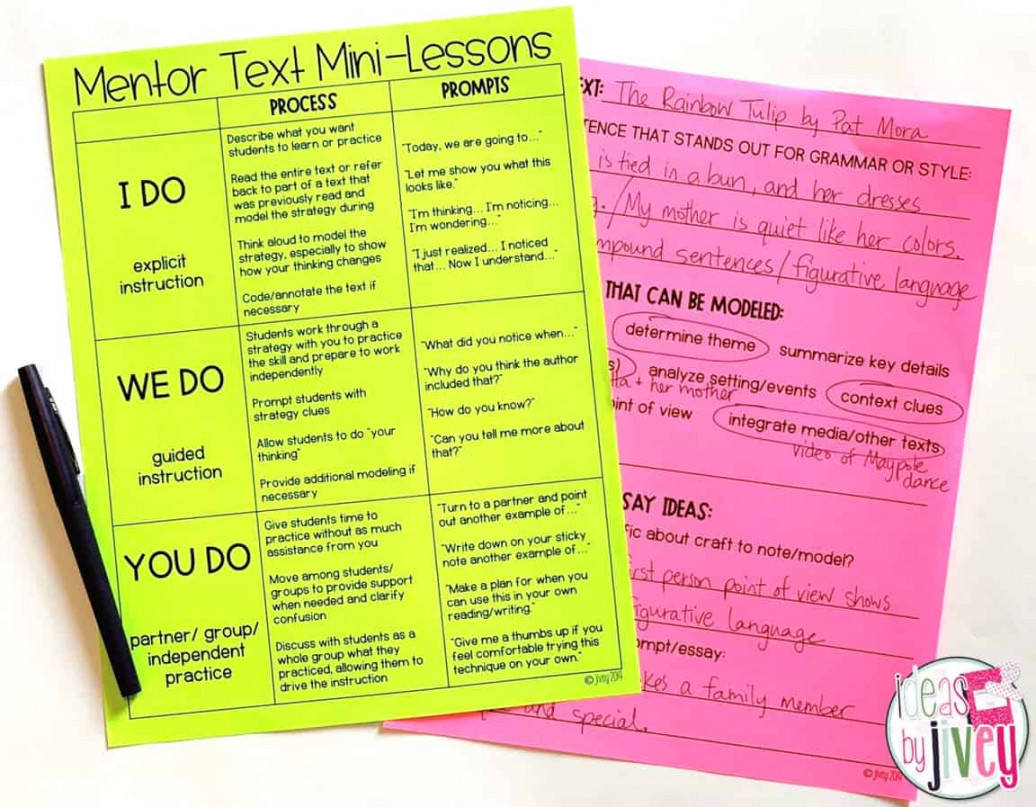 Mentor Text Mini-Lessons
PROCESS
PROMPTS
I DO
explicit
instruction
Describe what you want
students to learn or practice
Read the entire text or refer
back to part of a text that
was previously read and
model the strategy during
Think aloud to model the
strategy, especially to show
how your thinking changes
Code/annotate the text if
necessary
"Today, we are going to..."
"Let me show you what this
looks like."
"I'm thinking... I'm noticing...
I'm wondering..."
"I just realized... I noticed
that... Now I understand..."
WE DO
guided
instruction
Students work through a
strategy with you to practice
the skill and prepare to work
independently
Prompt students with
strategy clues
Allow students to do "your
thinking"
Provide additional modeling if
necessary
"What did you notice when..."
"Why do you think the author
included that?"
"How do you know?"
"Can you tell me more about
that?"
YOU DO
partner/ group/
independent
practice
Give students time to
practice without as much
assistance from you
Move among students/
groups to provide support
when needed and clarify
confusion
Discuss with students as a
whole group what they
practiced, allowing them to
drive the instruction
"Turn to a partner and point
out another example of..."
"Write down on your sticky
note another example of..."
"Make a plan for when you
can use this in your own
reading/writing."
"Give me a thumbs up if you
feel comfortable trying this
technique on your own."
© jivey 2019
The Rainbow Tulip by Pat Mora
THAT STANDS OUT FOR GRAMMAR OR STYLE:
is tied in a bun, and her dresses
/My mother is quiet like her colors.
sentences/figurative language
THAT CAN BE MODELED:
determine theme summarize key details
analyze setting/events context clues
+ her mother
of view integrate media/other texts
video of Maypole
dance
IDEAS:
about craft to note/model?
person point of view shows
language
a family member
and special.
© jivey 2019
ideas
by jivey